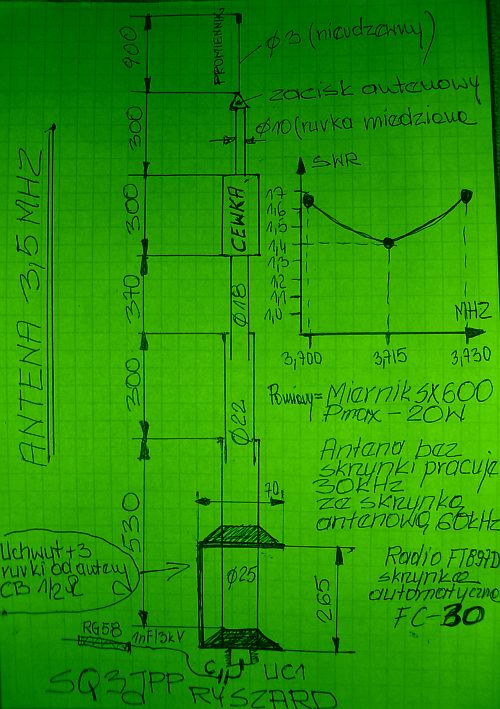 ANTENA 3,5 MHZ
900
300
300
370
300
530
PROMIENNIK
Ø3 (nierdzewny)
zacisk antenowy
Ø10 (rurka miedziana
CEWKA
Ø18
Ø22
70
Ø25
265
SWR
1,7
1,6
1,5
1,4
1,3
1,2
1,1
1,0
MHZ
3,700
3,715
3,730
Pomiary = Miernik SX600
Pmax - 20W
Antena bez
skrzynki pracuje
30kHz
ze skrzynką
antenową 60kHz
Radio FT897D
skrzynka
automatyczna
FC-30
Uchwyt + 3
rurki od anteny
CB 1/2
RG58
1nF/3kV
C1
UC1
SQ3JPP
RYSZARD